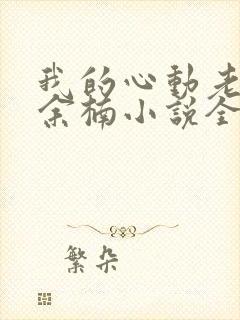 我的心動老
余楠小說全
繁朵